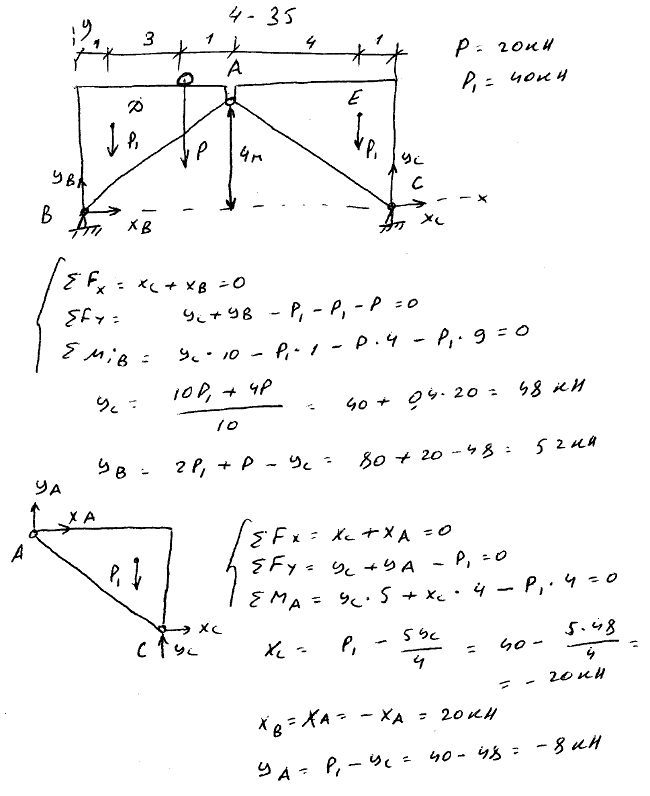 4 - 35
y
1 3 1 4 1
P = 20кН
P₁ = 40кН
A
D E
P₁ P 4м P₁
yB yC
B C x
xB xC
ΣFx = xC + xB = 0
ΣFy = yC + yB - P₁ - P₁ - P = 0
ΣMiB = yC · 10 - P₁ · 1 - P · 4 - P₁ · 9 = 0
yC = (10P₁ + 4P) / 10 = 40 + 0,4 · 20 = 48 кН
yB = 2P₁ + P - yC = 80 + 20 - 48 = 52кН
yA
xA
A
P₁
C xC
yC
ΣFx = xC + xA = 0
ΣFy = yC + yA - P₁ = 0
ΣMA = yC · 5 + xC · 4 - P₁ · 4 = 0
xC = P₁ - 5yC / 4 = 40 - 5·48 / 4 =
= - 20кН
xB = xA = - xA = 20кН
yA = P₁ - yC = 40 - 48 = - 8кН